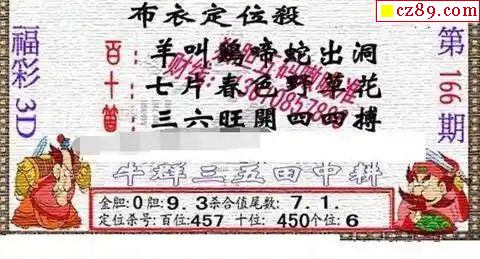 cz89.com
布衣定位殺
福彩3D
第166期
百 羊叫鷄啼蛇出洞
十 七片春色野草花
三六旺開四四搏
牛群三五田中耕
金胆:0胆:9.3杀合值尾数:7.1.
定位杀号:百位:457 十位:450个位:6